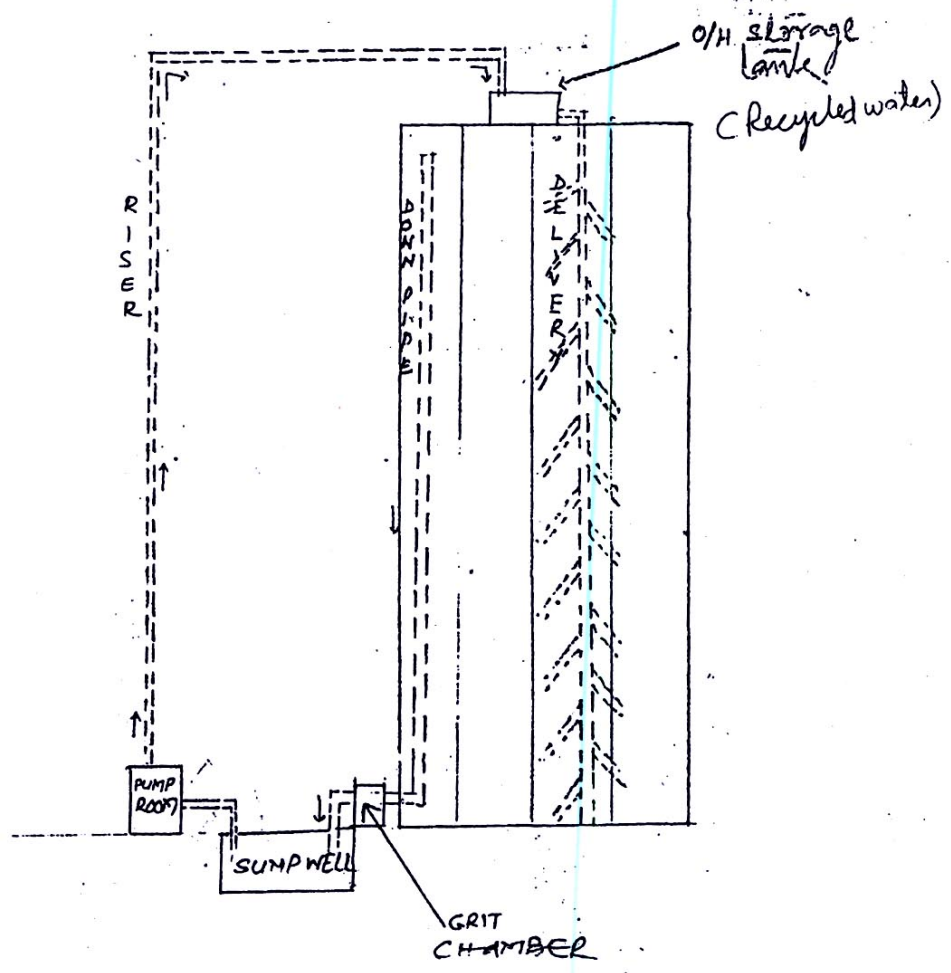 O/H storage
tank
(Recycled water)
RISER
DOWN PIPE
DELIVERY
PUMP
ROOM
SUMP WELL
GRIT
CHAMBER